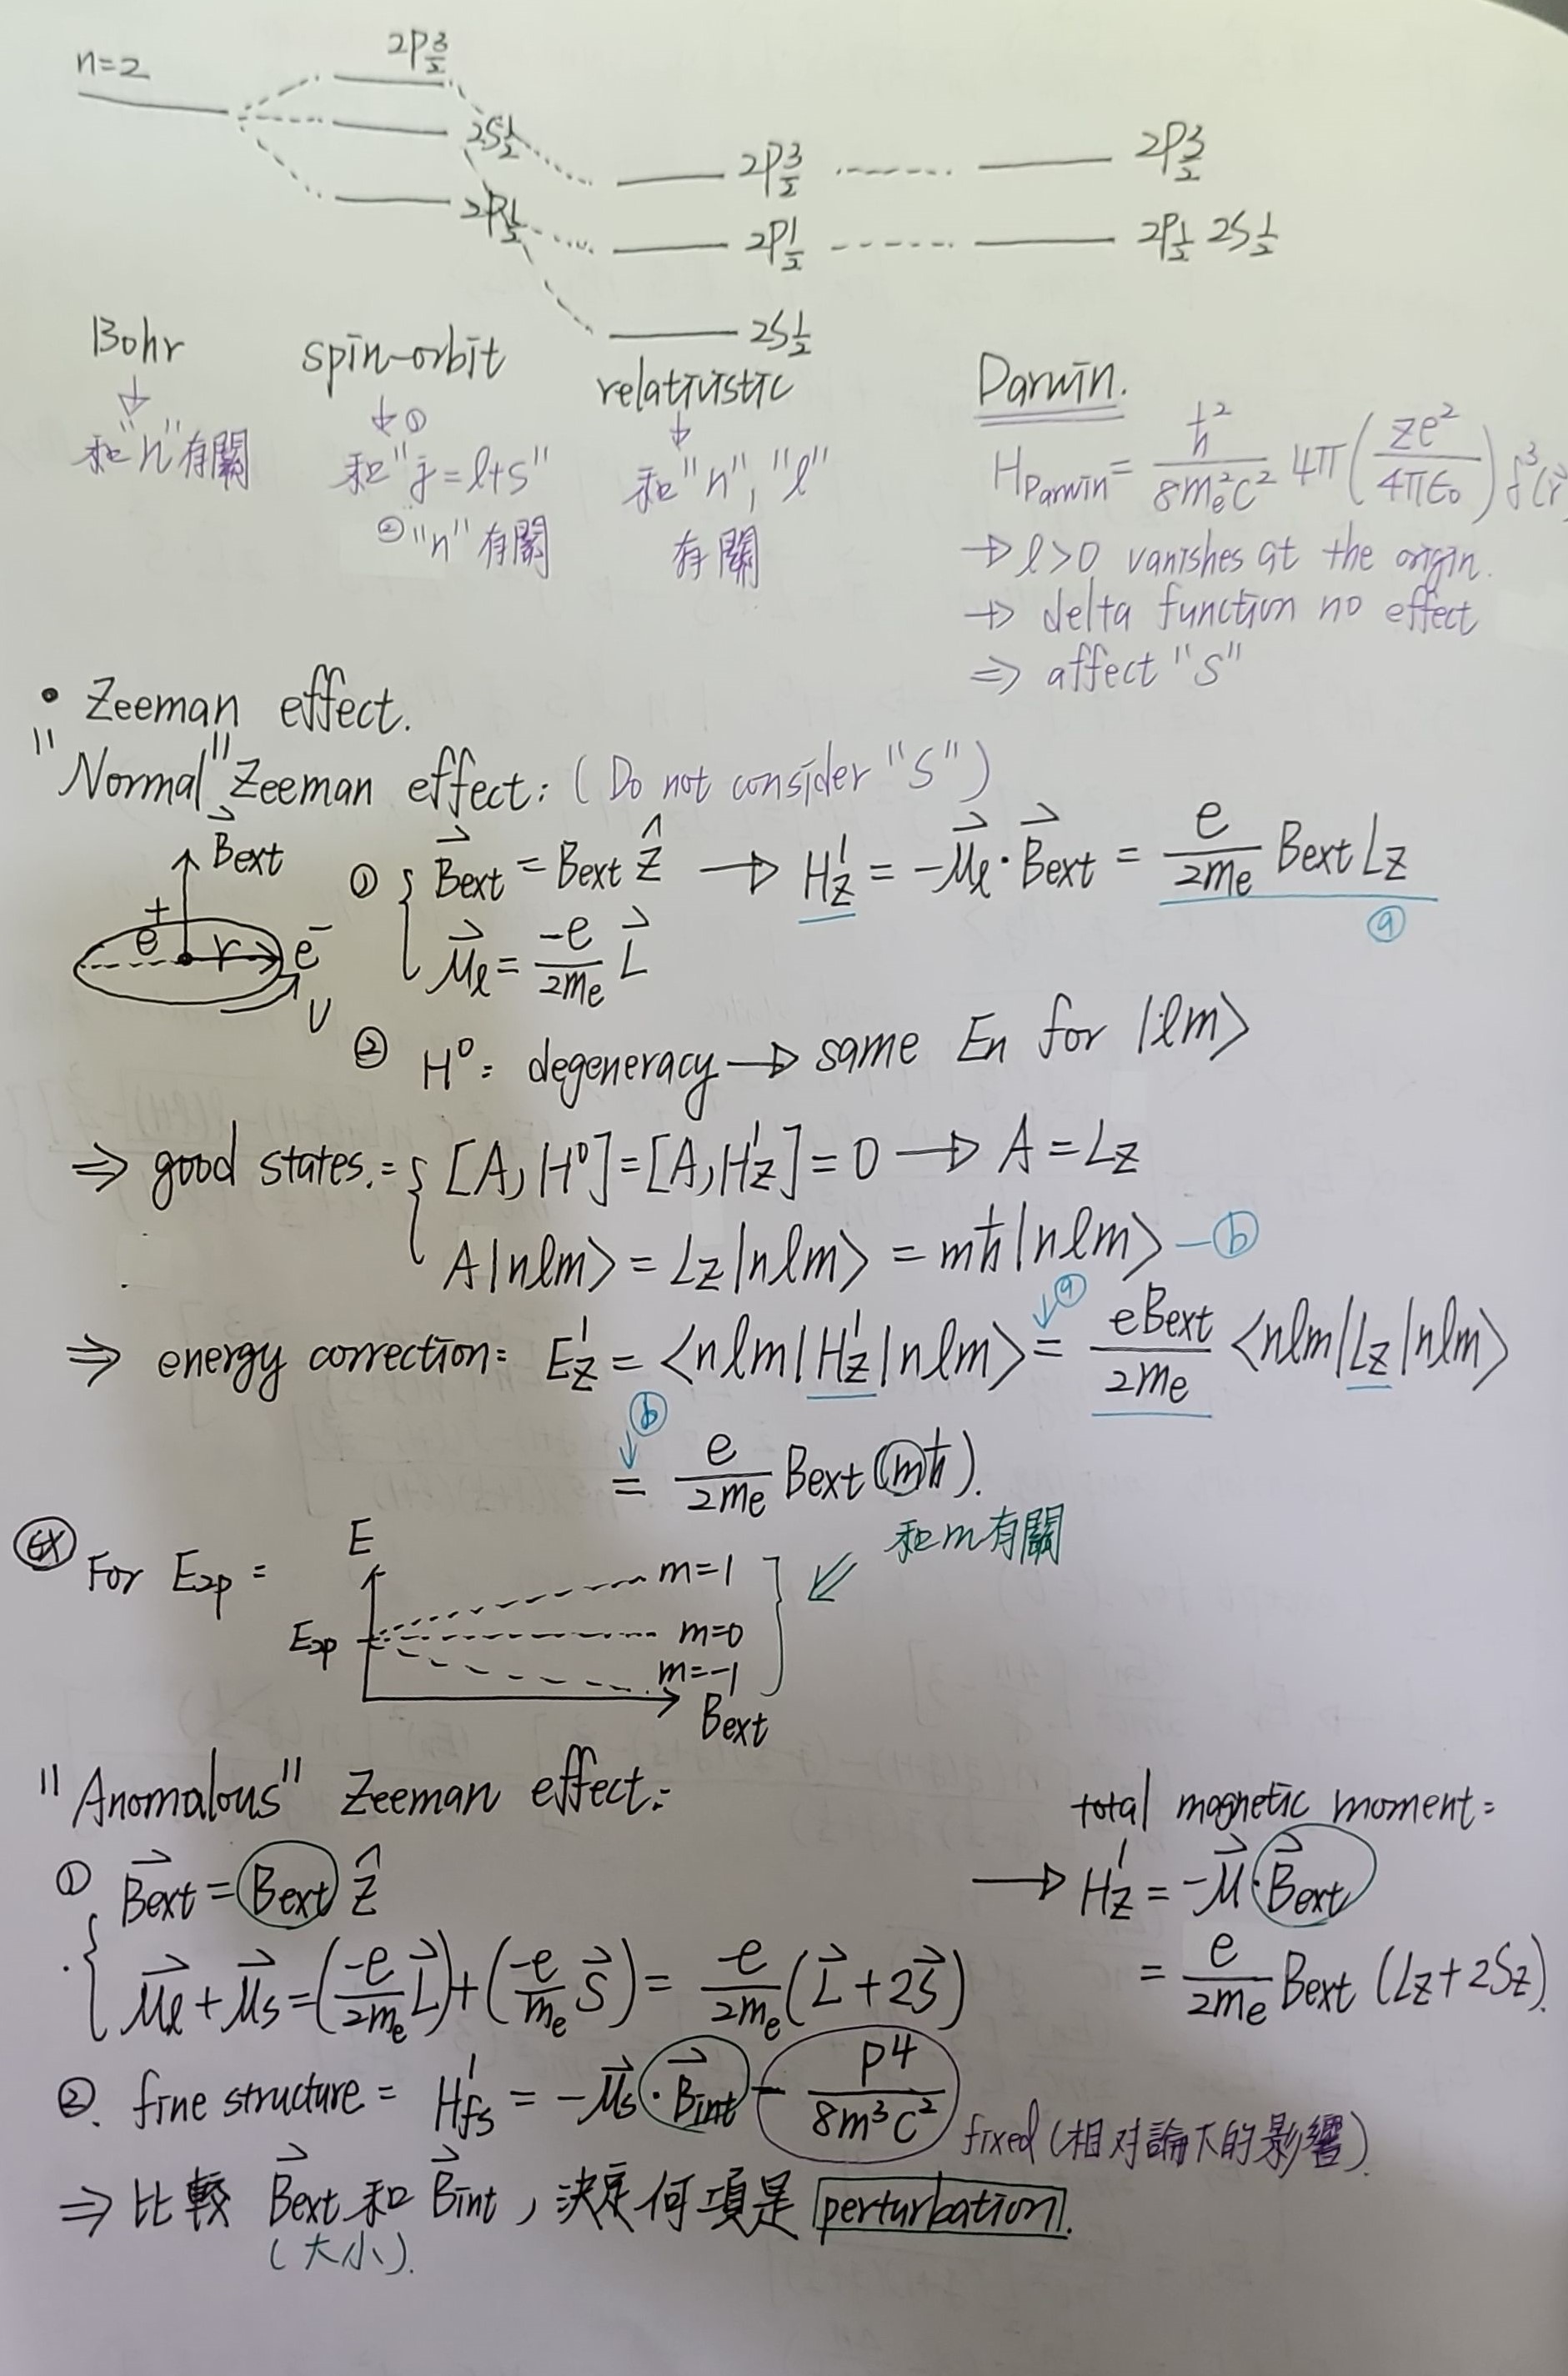 n=2
2P3/2
2S1/2
2P1/2
2P3/2
2P1/2
2S1/2
2P3/2
2P1/2 2S1/2
Bohr
↓
和"n"有關
spin-orbit
↓①
和"j=l+s"
②"n"有關
relativistic
↓
和"n", "l"
有關
Darwin.
H_Darwin = ħ²/8mₑ²c² 4π(Ze²/4πε₀) δ³(r⃗
→ l>0 vanishes at the origin.
→ delta function no effect
⇒ affect "S"
• Zeeman effect.
"Normal" Zeeman effect: (Do not consider "S")
B⃗ext
+
e
r
e⁻
v
① { B⃗ext = Bext ẑ → H'z = -μ⃗l·B⃗ext = e/2me Bext Lz
ⓐ
μ⃗l = -e/2me L⃗
② H⁰: degeneracy → same En for |lm⟩
⇒ good states: { [A, H⁰] = [A, H'z] = 0 → A = Lz
A|nlm⟩ = Lz|nlm⟩ = mħ|nlm⟩ — ⓑ
⇒ energy correction: E¹z = ⟨nlm|H'z|nlm⟩ =↓ⓐ eBext/2me ⟨nlm|Lz|nlm⟩
ⓑ↓ = e/2me Bext (mħ).
和m有關
EX For E2p =
E
E2p
m=1
m=0
m=-1
Bext
"Anomalous" Zeeman effect:
① B⃗ext = Bext ẑ
{ μ⃗l + μ⃗s = (-e/2me L⃗) + (-e/me S⃗) = -e/2me (L⃗ + 2S⃗)
total magnetic moment:
→ H'z = -μ⃗·B⃗ext
= e/2me Bext (Lz + 2Sz).
②. fine structure = H'fs = -μ⃗s·B⃗int - P⁴/8m³c² fixed (相对論下的影響).
⇒ 比較 B⃗ext 和 B⃗int, 決定何項是 perturbation.
(大小).